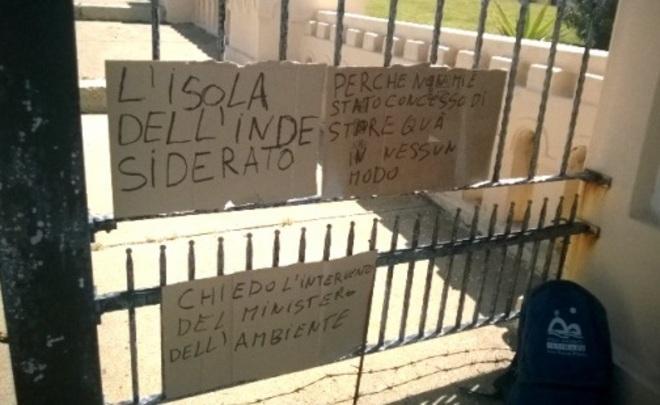 L'ISOLA
DELL'INDE
SIDERATO
PERCHE NON MI È
STATO CONCESSO DI
STARE QUÀ
IN NESSUN
MODO
CHIEDO L'INTERVENTO
DEL MINISTERO
DELL'AMBIENTE